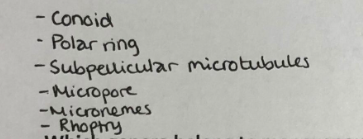 - Conoid
- Polar ring
- Subpellicular microtubules
- Micropore
- Micronemes
- Rhoptry